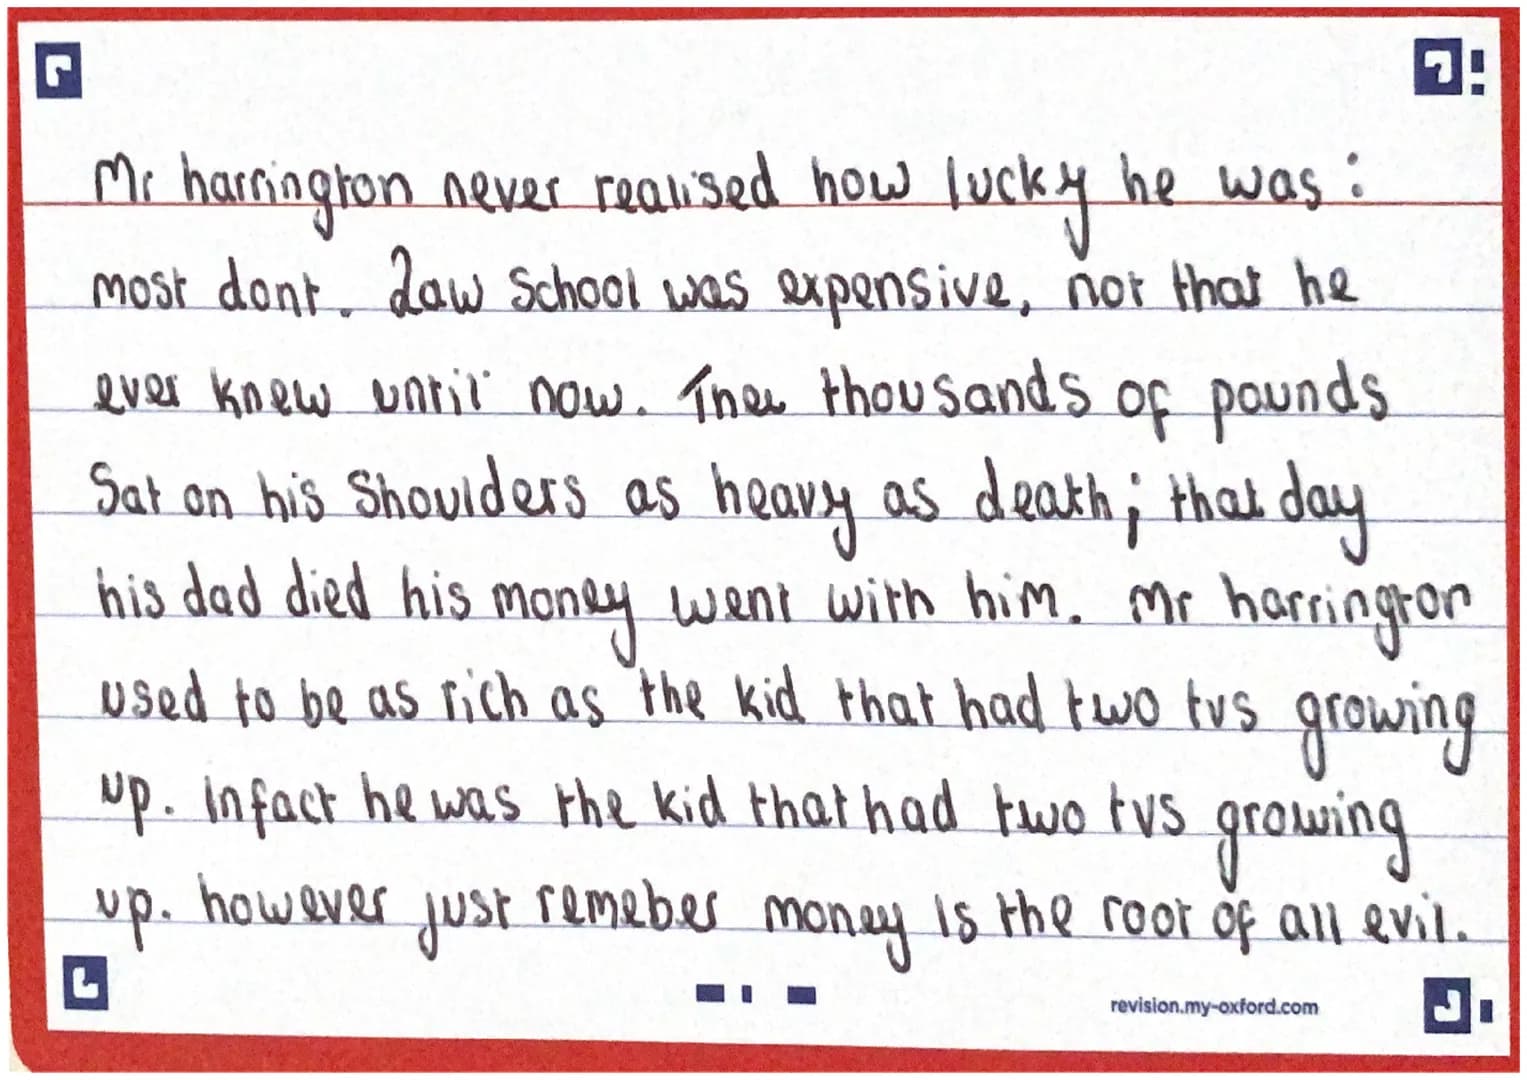 Mr harrington never realised how lucky he was:
most dont. Law School was expensive, not that he
ever knew until now. The thousands of pounds
Sat on his Shoulders as heavy as death; that day
his dad died his money went with him. Mr harrington
used to be as rich as the kid that had two tvs growing
up. infact he was the kid that had two tvs growing
up. however just remeber money is the root of all evil.
revision.my-oxford.com